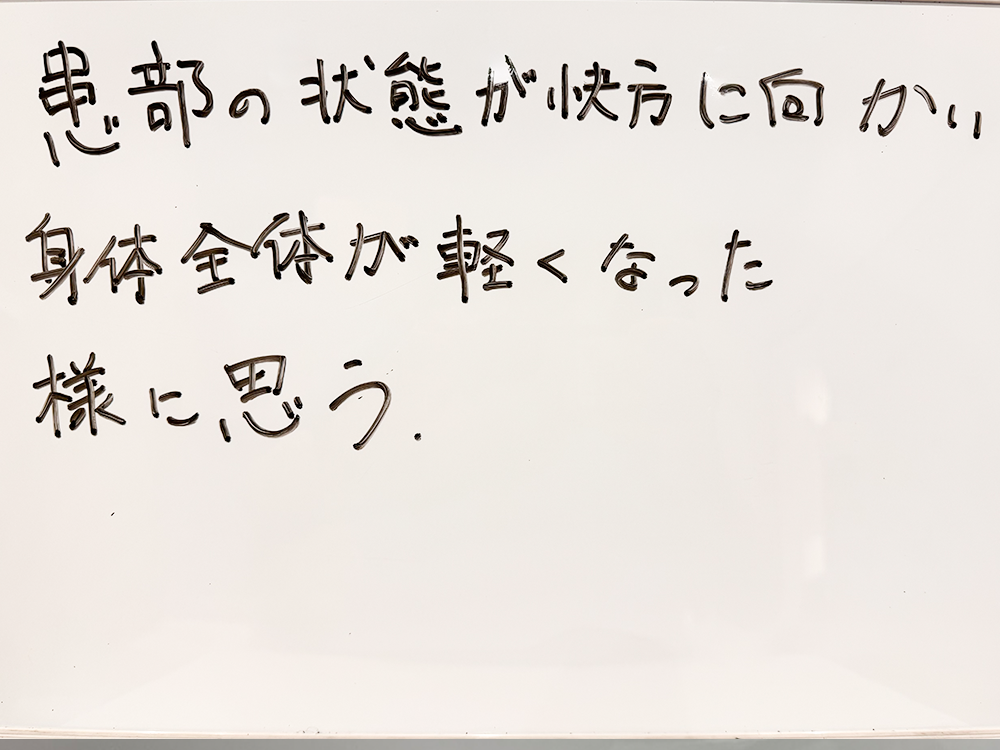 患部の状態が快方に向かい
身体全体が軽くなった
様に思う.